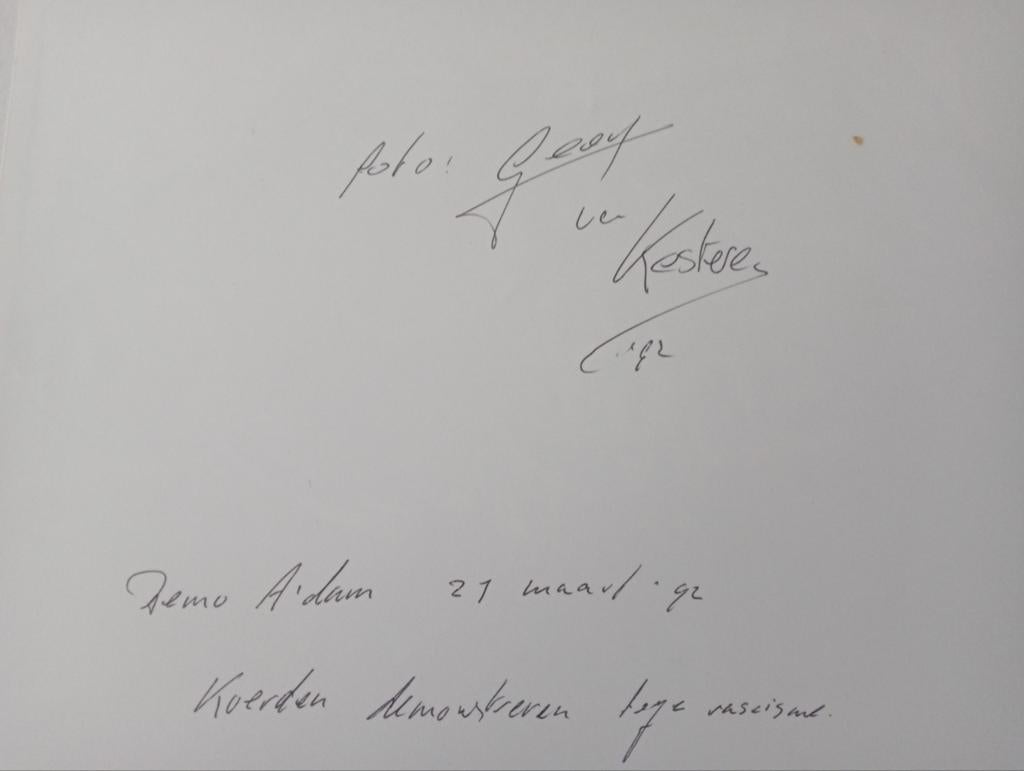 foto: Geert
van
Kesteren
'92
Demo A'dam 21 maart '92
Koerden demonstreren tege racisme.